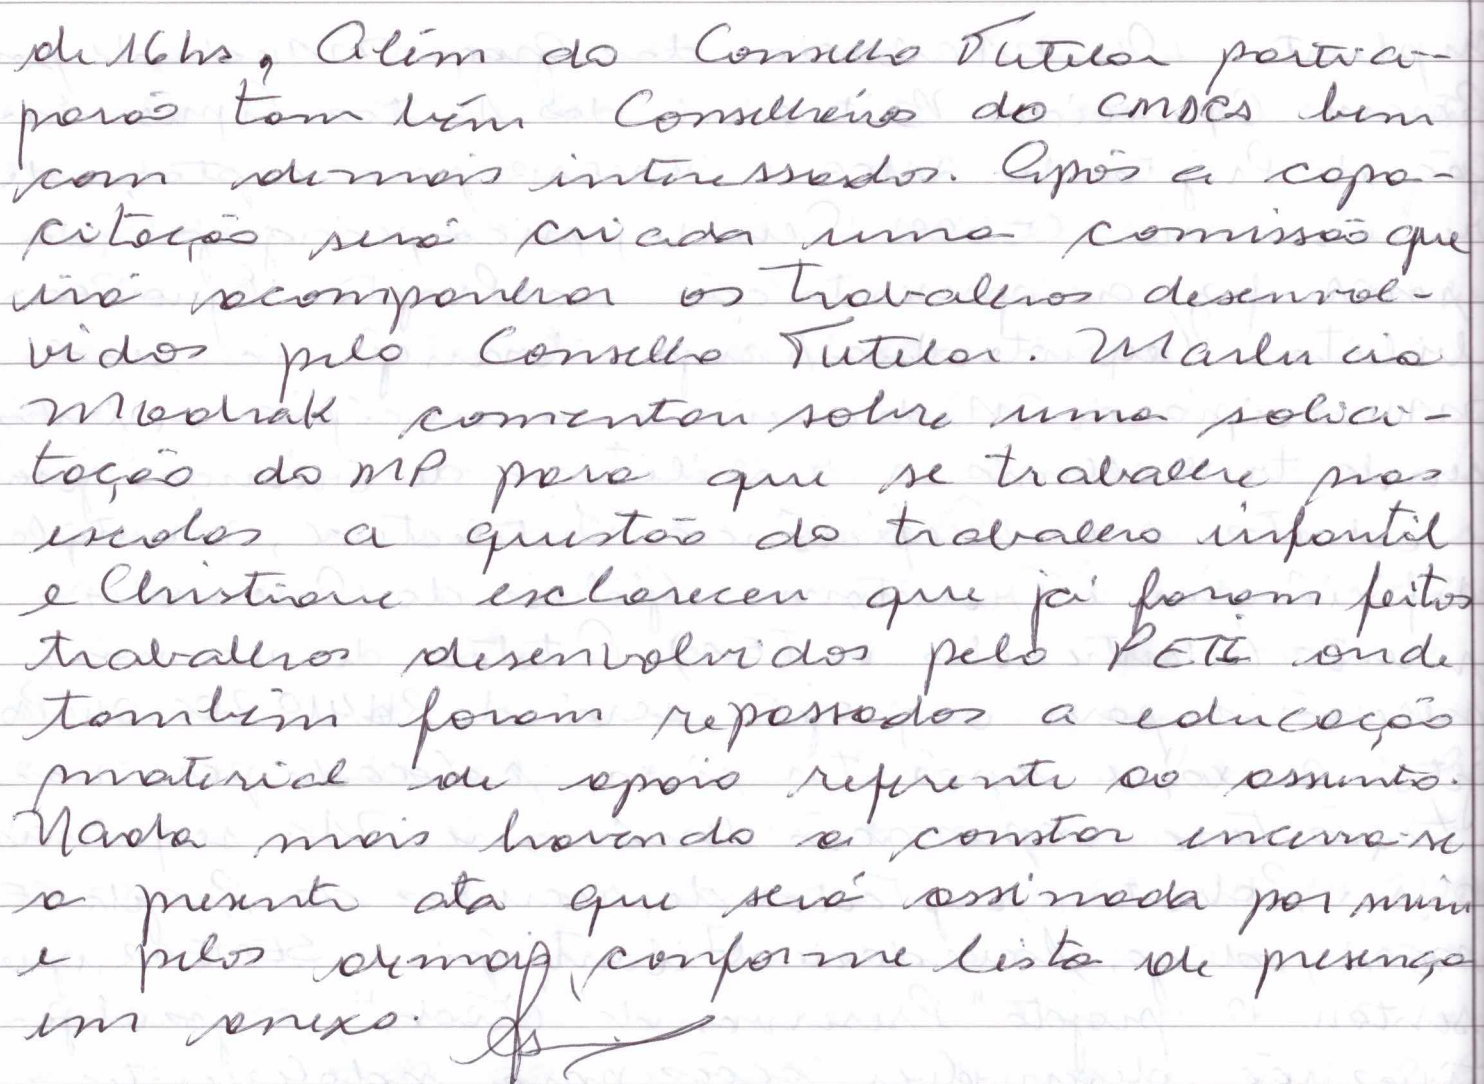 de 16hs, Além do Conselho Tutelar partici-
parão também Conselheiros do CMDCA bem
com demais interessados. Após a capa-
citação será criada uma comissão que
irá acompanhar os trabalhos desenvol-
vidos pelo Conselho Tutelar. Marlucia
Madrak comentou sobre uma solici-
tação do MP para que se trabalhe nas
escolas a questão do trabalho infantil
e Christiane esclareceu que já foram feitos
trabalhos desenvolvidos pelo PETI onde
também foram repassados a educação
material de apoio referente ao assunto.
Nada mais havendo a constar encerra-se
a presente ata que será assinada por mim
e pelos demais, conforme lista de presença
em anexo.